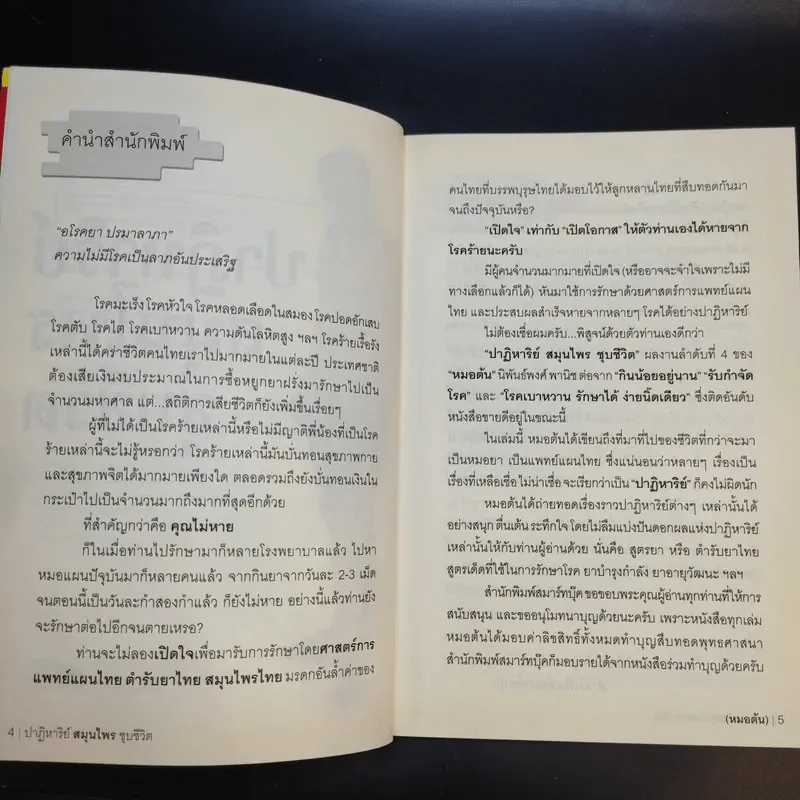 คำนำสำนักพิมพ์
"อโรคยา ปรมาลาภา"
ความไม่มีโรคเป็นลาภอันประเสริฐ
โรคมะเร็ง โรคหัวใจ โรคหลอดเลือดในสมอง โรคปอดอักเสบ
โรคตับ โรคไต โรคเบาหวาน ความดันโลหิตสูง ฯลฯ โรคร้ายเรื้อรัง
เหล่านี้ได้คร่าชีวิตคนไทยเราไปมากมายในแต่ละปี ประเทศชาติ
ต้องเสียเงินงบประมาณในการซื้อหยูกยาฝรั่งมารักษาไปเป็น
จำนวนมหาศาล แต่...สถิติการเสียชีวิตก็ยังเพิ่มขึ้นเรื่อยๆ
ผู้ที่ไม่ได้เป็นโรคร้ายเหล่านี้หรือไม่มีญาติพี่น้องที่เป็นโรค
ร้ายเหล่านี้จะไม่รู้หรอกว่า โรคร้ายเหล่านี้มันบั่นทอนสุขภาพกาย
และสุขภาพจิตได้มากมายเพียงใด ตลอดรวมถึงยังบั่นทอนเงินใน
กระเป๋าไปเป็นจำนวนมากถึงมากที่สุดอีกด้วย
ที่สำคัญกว่าคือ คุณไม่หาย
ก็ในเมื่อท่านไปรักษามาก็หลายโรงพยาบาลแล้ว ไปหา
หมอแผนปัจจุบันมาก็หลายคนแล้ว จากกินยาจากวันละ 2-3 เม็ด
จนตอนนี้เป็นวันละกำสองกำแล้ว ก็ยังไม่หาย อย่างนี้แล้วท่านยัง
จะรักษาต่อไปอีกจนตายเหรอ?
ท่านจะไม่ลองเปิดใจเพื่อมารับการรักษาโดยศาสตร์การ
แพทย์แผนไทย ตำรับยาไทย สมุนไพรไทย มรดกอันล้ำค่าของ
4 | ปาฏิหาริย์ สมุนไพร ชุบชีวิต
คนไทยที่บรรพบุรุษไทยได้มอบไว้ให้ลูกหลานไทยที่สืบทอดกันมา
จนถึงปัจจุบันหรือ?
"เปิดใจ" เท่ากับ "เปิดโอกาส" ให้ตัวท่านเองได้หายจาก
โรคร้ายนะครับ
มีผู้คนจำนวนมากมายที่เปิดใจ (หรืออาจจะจำใจเพราะไม่มี
ทางเลือกแล้วก็ได้) หันมาใช้การรักษาด้วยศาสตร์การแพทย์แผน
ไทย และประสบผลสำเร็จหายจากหลายๆ โรคได้อย่างปาฏิหาริย์
ไม่ต้องเชื่อผมครับ...พิสูจน์ด้วยตัวท่านเองดีกว่า
"ปาฏิหาริย์ สมุนไพร ชุบชีวิต" ผลงานลำดับที่ 4 ของ
"หมอต้น" นิพันธ์พงศ์ พานิช ต่อจาก "กินน้อยอยู่นาน" "รับกำจัด
โรค" และ "โรคเบาหวาน รักษาได้ ง่ายนิ๊ดเดียว" ซึ่งติดอันดับ
หนังสือขายดีอยู่ในขณะนี้
ในเล่มนี้ หมอต้นได้เขียนถึงที่มาที่ไปของชีวิตที่กว่าจะมา
เป็นหมอยา เป็นแพทย์แผนไทย ซึ่งแน่นอนว่าหลายๆ เรื่องเป็น
เรื่องที่เหลือเชื่อ ไม่น่าเชื่อ จะเรียกว่าเป็น "ปาฏิหาริย์" ก็คงไม่ผิดนัก
หมอต้นได้ถ่ายทอดเรื่องราวปาฏิหาริย์ต่างๆ เหล่านั้นได้
อย่างสนุก ตื่นเต้น ระทึกใจ โดยไม่ลืมแบ่งปันดอกผลแห่งปาฏิหาริย์
เหล่านั้นให้กับท่านผู้อ่านด้วย นั่นคือ สูตรยา หรือ ตำรับยาไทย
สูตรเด็ดที่ใช้ในการรักษาโรค ยาบำรุงกำลัง ยาอายุวัฒนะ ฯลฯ
สำนักพิมพ์สมาร์ทบุ๊ค ขอขอบพระคุณผู้อ่านทุกท่านที่ให้การ
สนับสนุน และขออนุโมทนาบุญด้วยนะครับ เพราะหนังสือทุกเล่ม
หมอต้นได้มอบค่าลิขสิทธิ์ทั้งหมดทำบุญสืบทอดพุทธศาสนา
สำนักพิมพ์สมาร์ทบุ๊คก็มอบรายได้จากหนังสือร่วมทำบุญด้วยครับ
(หมอต้น) | 5